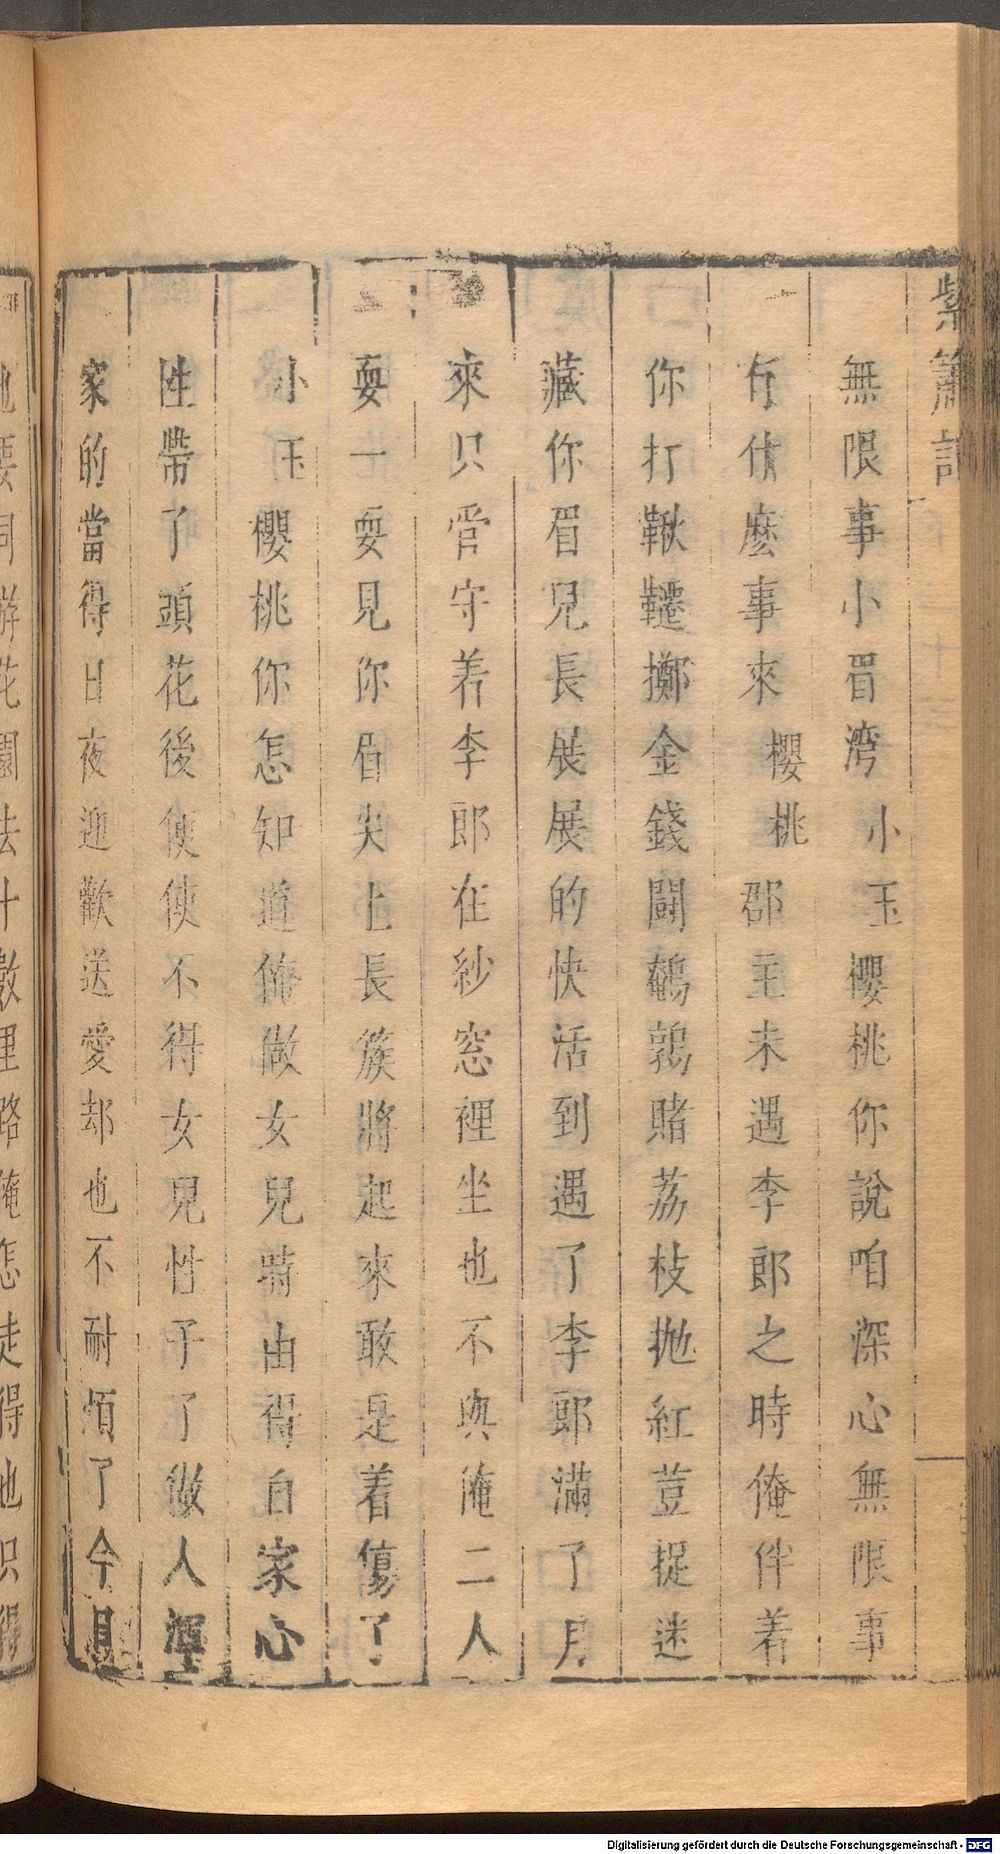 紫簫記
無限事小眉灣小玉櫻桃你說咱深心無限事
有什麽事來櫻桃郡主未遇李郎之時俺伴着
你打鞦韆擲金錢鬪鵪鶉賭荔枝抛紅荳捉迷
藏你眉兒長展展的快活到遇了李郎滿了月
來只管守着李郎在紗窓裡坐也不與俺二人
耍一耍見你眉尖上長簇將起來敢是着傷了
小玉櫻桃你怎知道俺做女兒時由得自家心
性帶了頭花後便使不得女兒性子了做人渾
家的當得日夜迎歡送愛却也不耐煩了今
也要同游花園去十數里路俺怎走得也只得
Digitalisierung gefördert durch die Deutsche Forschungsgemeinschaft - DFG